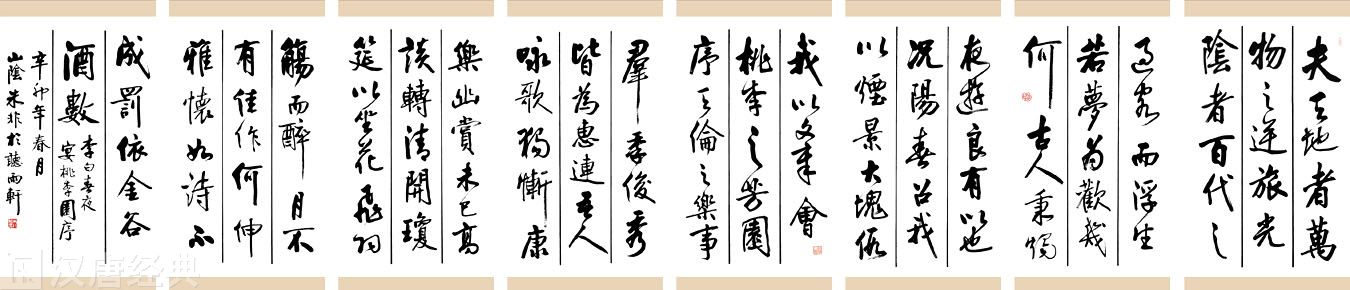 夫天地者萬
物之逆旅光
陰者百代之
過客而浮生
若夢為歡幾
何古人秉燭
夜遊良有以也
況陽春召我
以煙景大塊假
我以文章會
桃李之芳園
序天倫之樂事
羣季俊秀
皆為惠連吾人
咏歌獨慚康
樂幽賞未已高
談轉清開瓊
筵以坐花飛羽
觴而醉月不
有佳作何伸
雅懷如詩不
成罰依金谷
酒數
李白春夜
宴桃李園序
辛卯年春月
山陰朱非於聽雨軒
汉唐经典